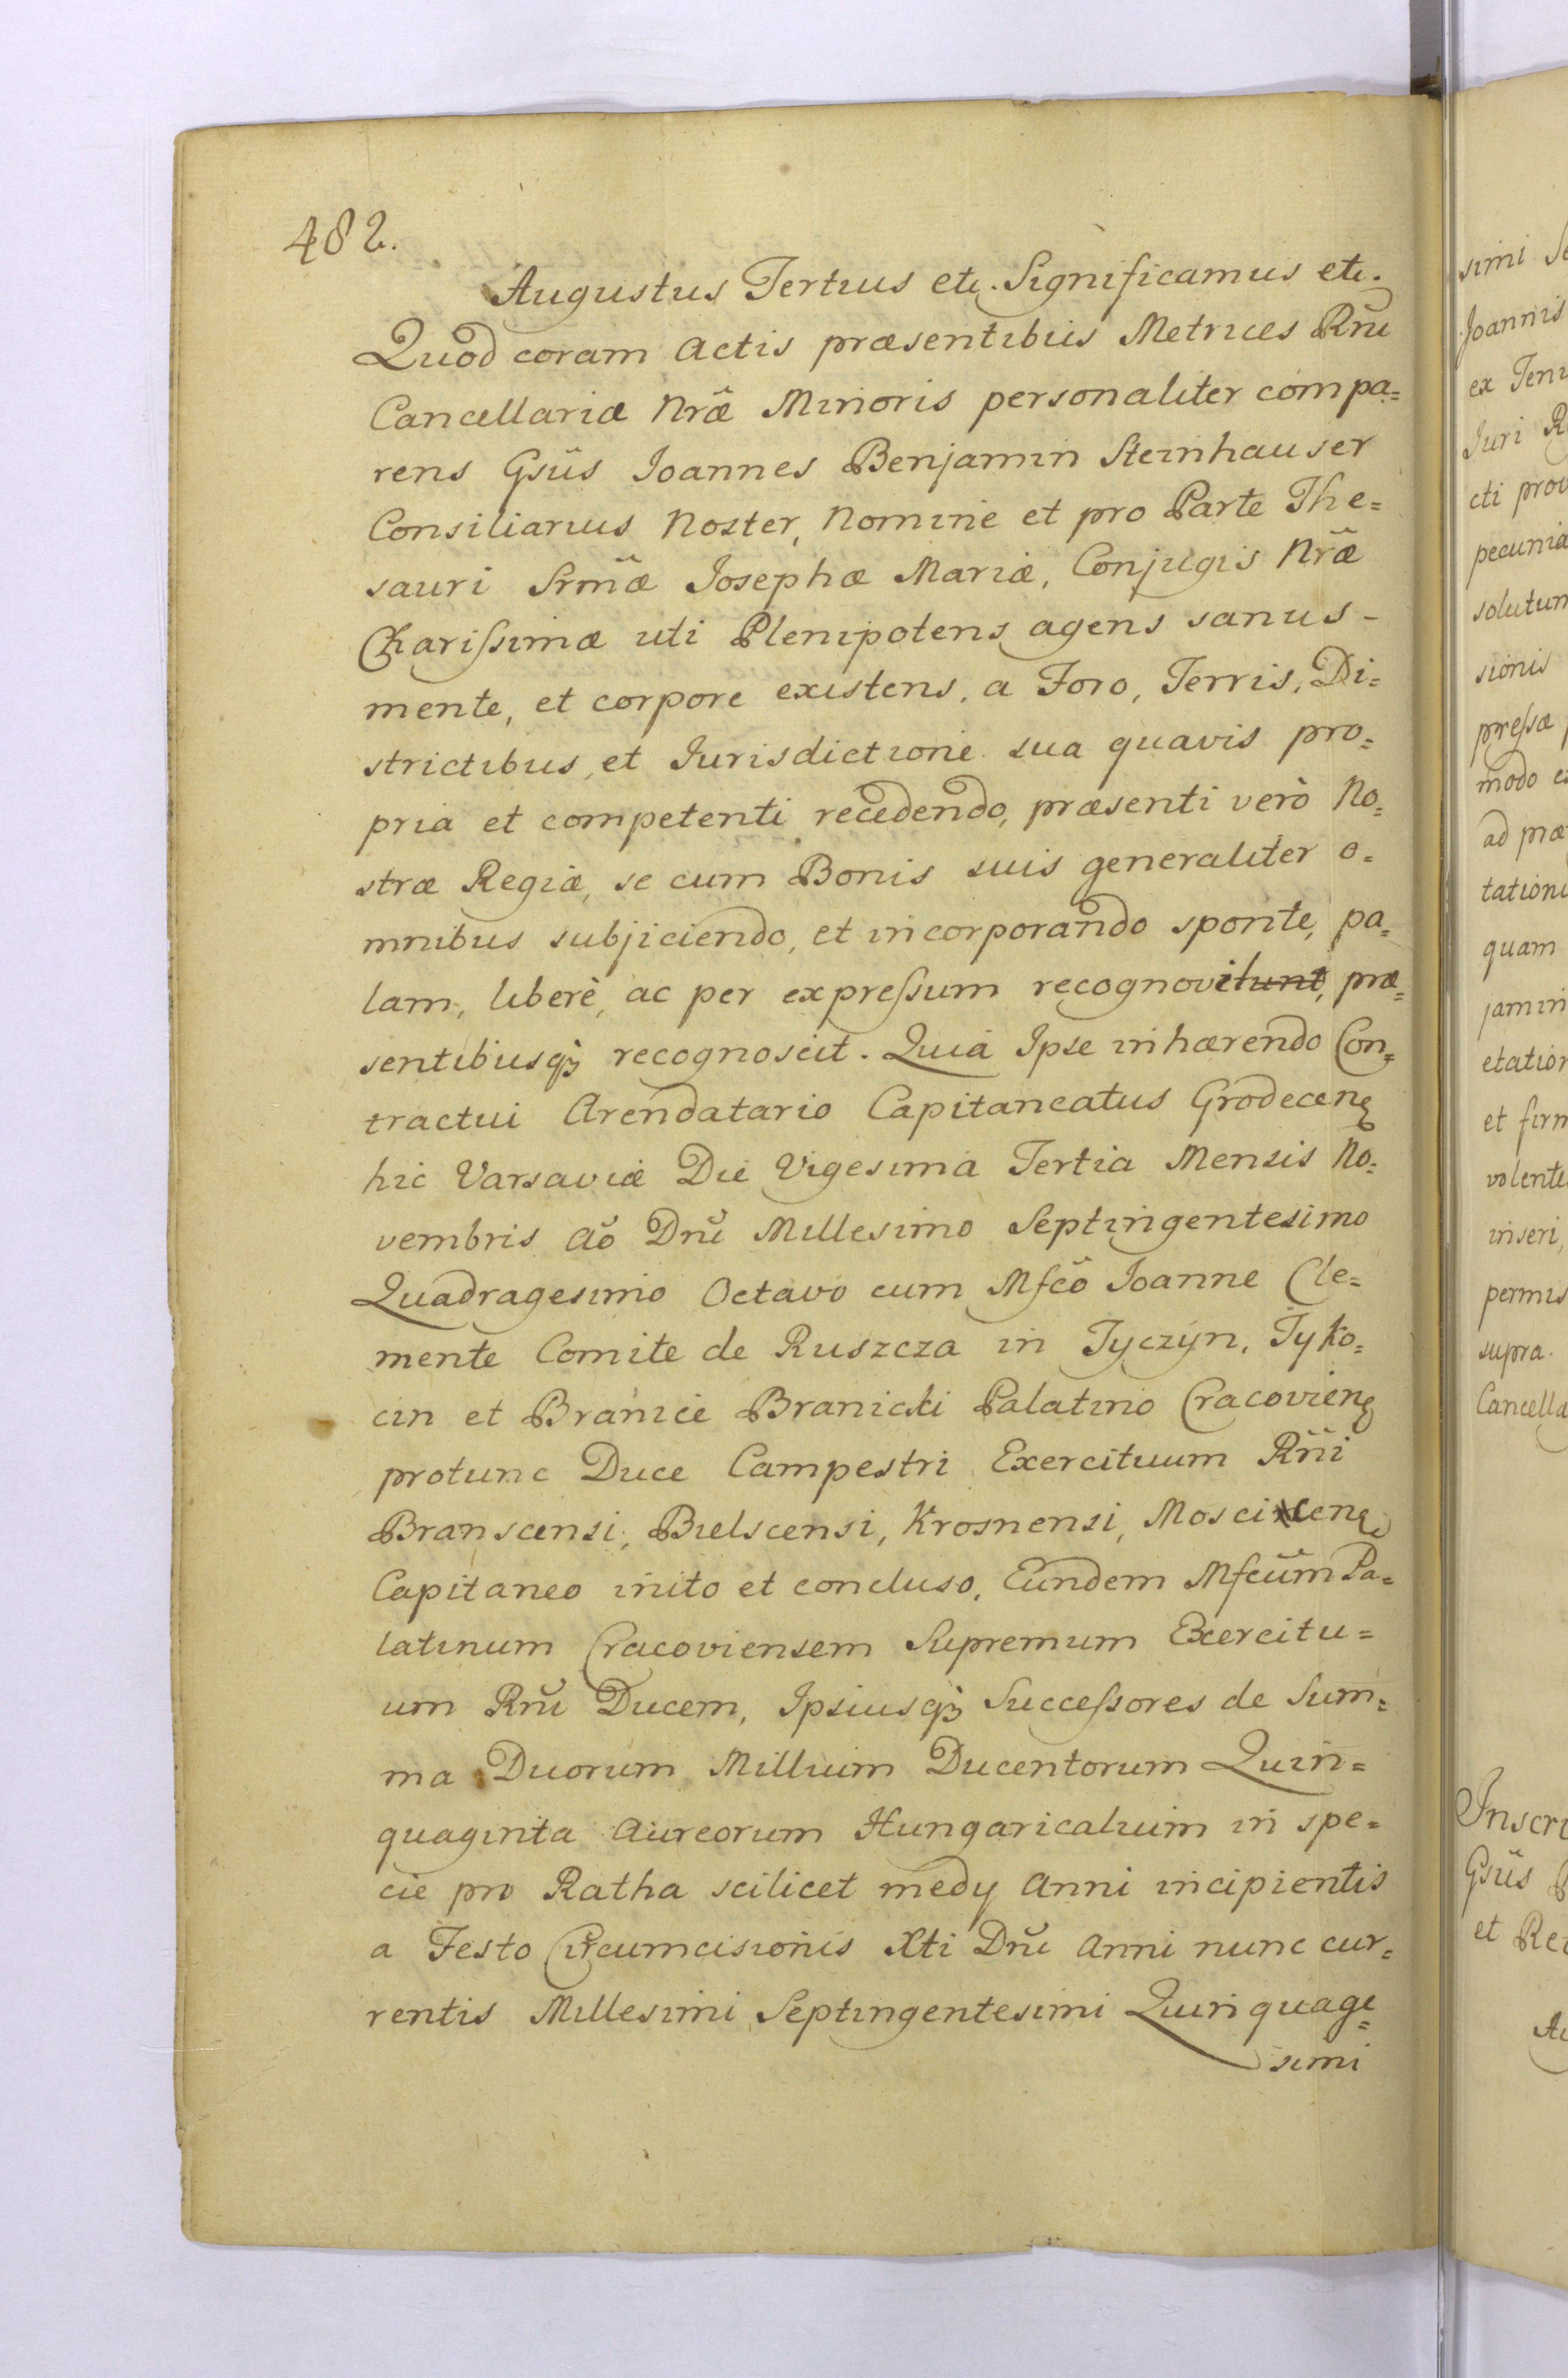 482.
Augustus Tertius etc. Significamus etc.
Quod coram Actis præsentibus Metrices Rñi
Cancellariæ Nræ Minoris personaliter compa=
rens Gsüs Joannes Benjamin Steinhauser
Consiliarius Noster, Nomine et pro Parte The=
sauri Srmæ Josephæ Mariæ, Conjugis Nræ
Charissimæ uti Plenipotens agens sanus -
mente, et corpore existens, a Foro, Terris, Di=
strictibus, et Jurisdictione sua quavis pro=
pria et competenti recedendo, præsenti verò No=
stræ Regiæ, se cum Bonis suis generaliter o=
mnibus subjiciendo, et incorporando sponte, pa=
lam, liberè, ac per expressum recognovit, præ=
sentibusq3 recognoscit. Quia Ipse inhærendo Con=
tractui Arendatario Capitaneatus Grodecens
hic Varsaviæ Die Vigesima Tertia Mensis No=
vembris Aõ Dñi Millesimo Septingentesimo
Quadragesimo Octavo cum Mfcõ Joanne Cle=
mente Comite de Ruszcza in Tyczyn, Tyko=
cin et Branice Branicki Palatino Cracoviens
protunc Duce Campestri Exercituum Rñi
Branscensi, Bielscensi, Krosnensi, Moscicens
Capitaneo inito et concluso, Eundem Mfcum Pa=
latinum Cracoviensem Supremum Exercitu=
um Rñi Ducem, Ipsiusq3 Successores de Sum=
ma Duorum Millium Ducentorum Quin=
quaginta Aureorum Hungaricalium in spe=
cie pro Ratha scilicet medy Anni incipientis
a Festo Circumcisionis Xti Dñi Anni nunc cur=
rentis Millesimi Septingentesimi Quinquage=
simi
simi
Joannis
ex
Juri
cti
pecunia
solutum
sionis
pressæ
modo
ad
quam
jamin
et
inseri,
supra.
Gsüs
et